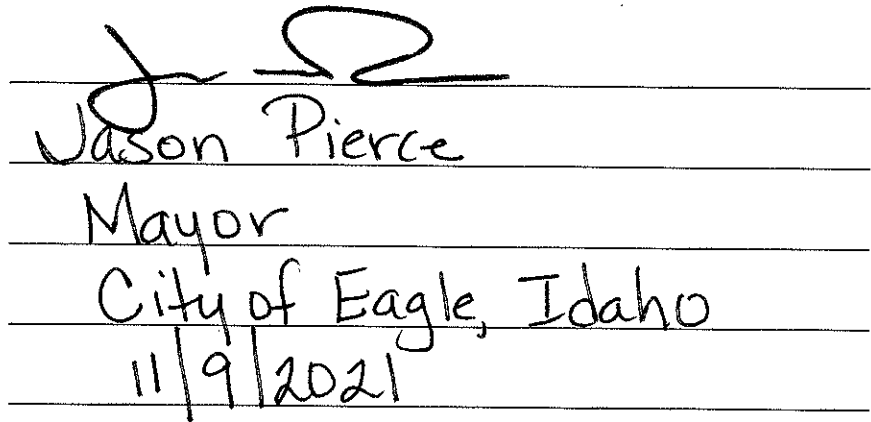 Jason Pierce
Mayor
City of Eagle, Idaho
11/9/2021